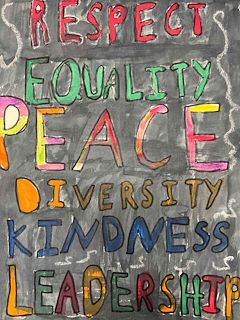 RESPECT
EQUALITY
PEACE
DIVERSITY
KINDNESS
LEADERSHIP